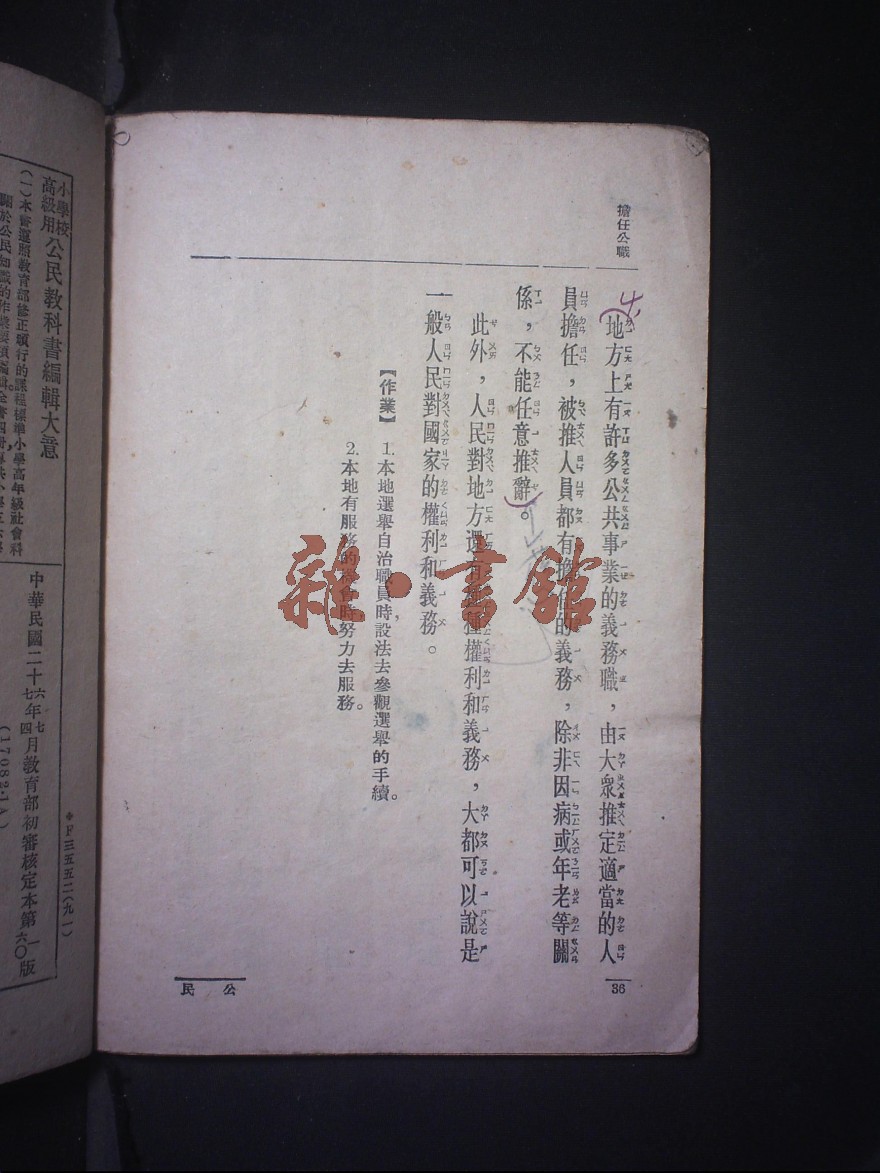 擔任公職
地方上有許多公共事業的義務職，由大衆推定適當的人
員擔任，被推人員都有擔任的義務，除非因病或年老等關
係，不能任意推辭。
此外，人民對地方還有種種權利和義務，大都可以說是
一般人民對國家的權利和義務。
【作業】 1.本地選舉自治職員時，設法去參觀選舉的手續。
2.本地有服務的機會時努力去服務。
36
公民
雜·書館
小學校高級用公民教科書編輯大意
(一)本書遵照教育部修正頒行的課程標準小學高年級社會科
中華民國二十六七年四七月教育部初審核定本第一六〇版
(17082·1A)
◆F三五五二(九一)